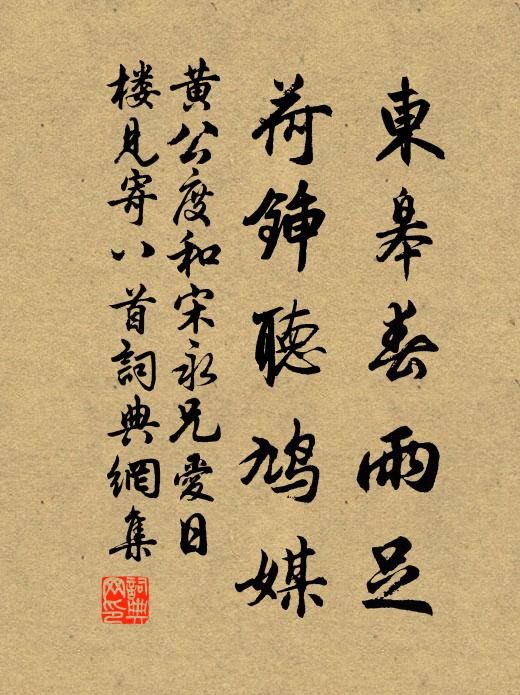 東皋春雨足
荷鍤聽鳩媒
黃公度和宋永兄愛日
樓見寄八首詞典網集
詞典网印